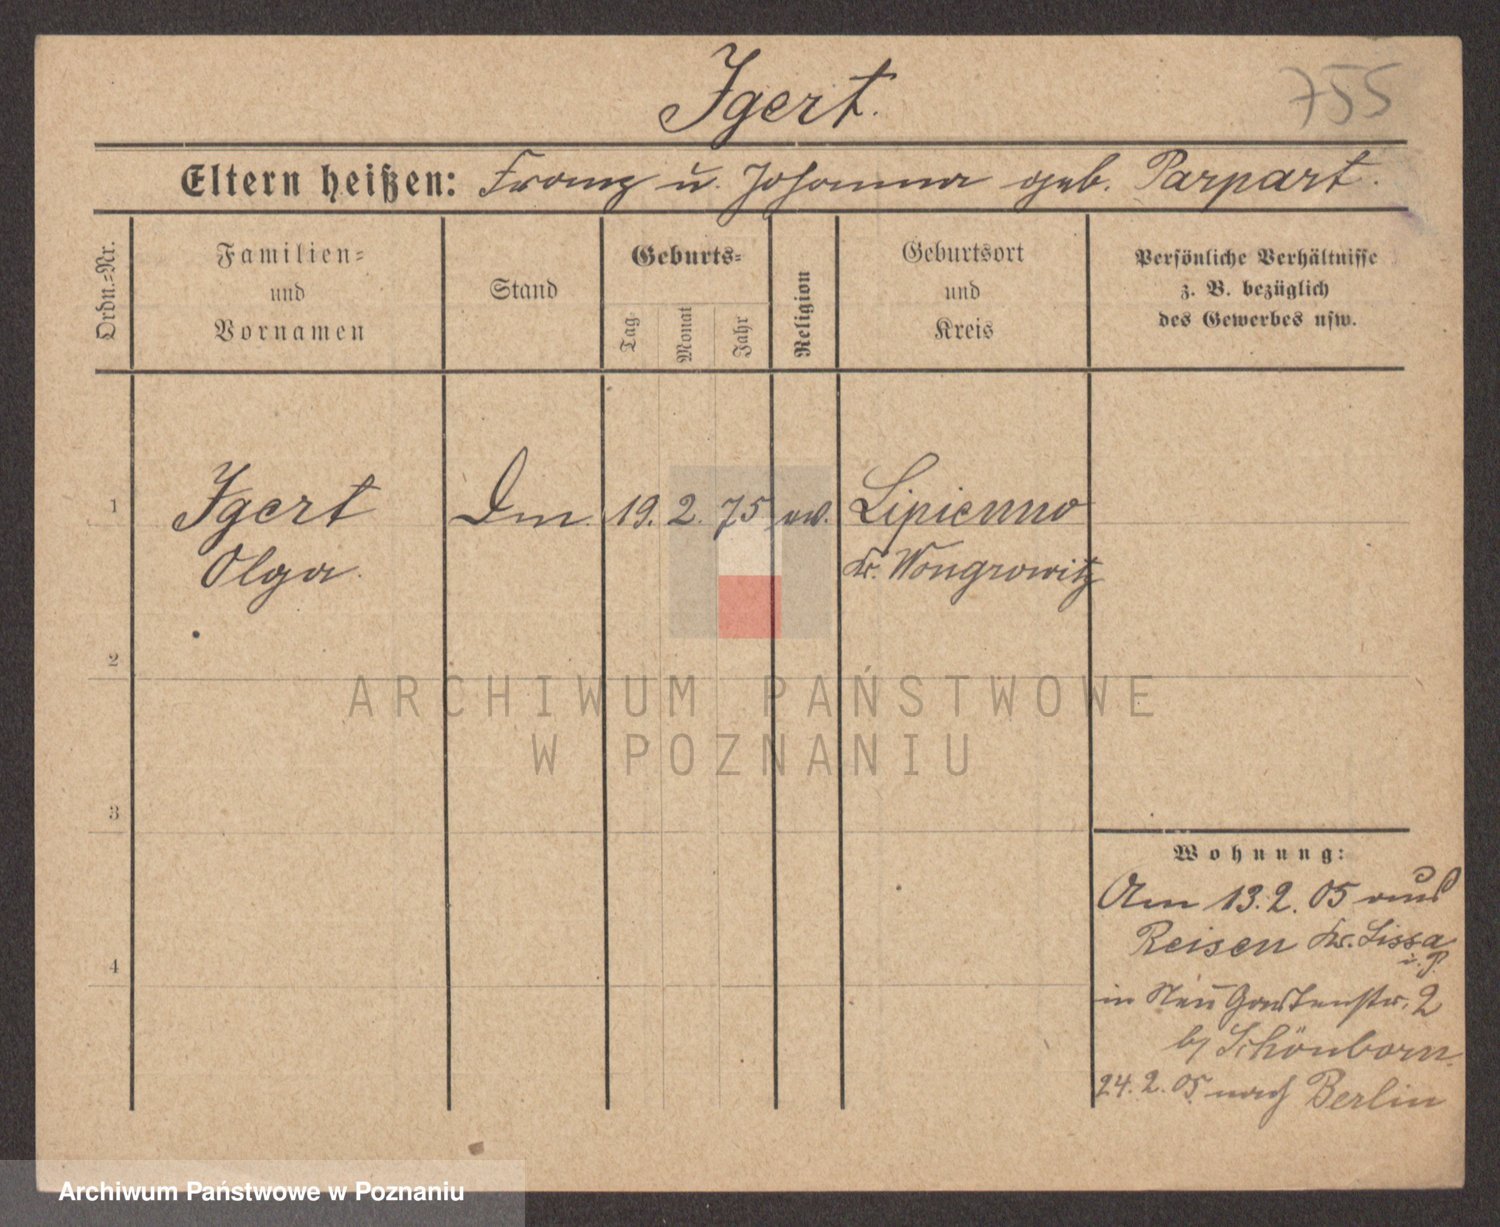 Igert.
755
Eltern heißen: Franz u. Johanna geb. Parpart.
Ordn.-Nr.
Familien-
und
Vornamen
Stand
Geburts-
Tag
Monat
Jahr
Religion
Geburtsort
und
Kreis
Persönliche Verhältnisse
z. B. bezüglich
des Gewerbes usw.
1
Igert Dm. 19. 2. 75 ev. Lipienno
Olga Kr. Wongrowitz
2
3
4
Wohnung:
Am 13.2.05 aus
Reisen Kr. Lissa
i. P.
in Neu Gartenstr. 2
b/ Schönborn.
24.2.05 nach Berlin
ARCHIWUM PAŃSTWOWE
W POZNANIU
Archiwum Państwowe w Poznaniu